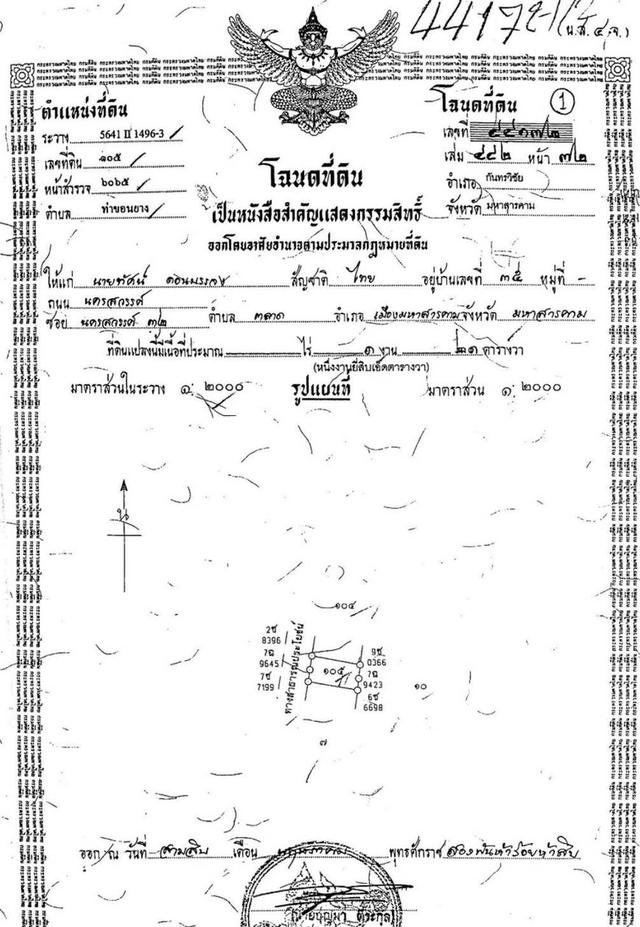 44172
(น.ส. ๔ จ.)
ตำแหน่งที่ดิน
ระวาง 5641 II 1496-3
เลขที่ดิน ๑๐๕
หน้าสำรวจ ๖๐๖๕
ตำบล ท่าขอนยาง
โฉนดที่ดิน ①
เลขที่ ๔๔๑๗๒
เล่ม ๔๔๒ หน้า ๗๒
อำเภอ กันทรวิชัย
จังหวัด มหาสารคาม
โฉนดที่ดิน
เป็นหนังสือสำคัญแสดงกรรมสิทธิ์
ออกโดยอาศัยอำนาจตามประมวลกฎหมายที่ดิน
ให้แก่ นายทัศน์ สัญชาติ ไทย อยู่บ้านเลขที่ ๓๕ หมู่ที่ -
ถนน นครสวรรค์
ซอย นครสวรรค์ ๓๒ ตำบล ตลาด อำเภอ เมืองมหาสารคาม จังหวัด มหาสารคาม
ที่ดินแปลงนี้มีเนื้อที่ประมาณ ไร่ ๑ งาน ๒๑ ตารางวา
(หนึ่งงานยี่สิบเอ็ดตารางวา)
มาตราส่วนในระวาง ๑: ๒๐๐๐ รูปแผนที่ มาตราส่วน ๑: ๒๐๐๐
น
๑๐๔
ทางสาธารณประโยชน์
2ช
8396
7ฉ
9645
7ช
7199
๑๐๕
9ช
0366
7ฉ
9423
6ช
6698
๑๐
๗
ออก ณ วันที่ สามสิบ เดือน พฤษภาคม พุทธศักราช สองพันห้าร้อยห้าสิบ